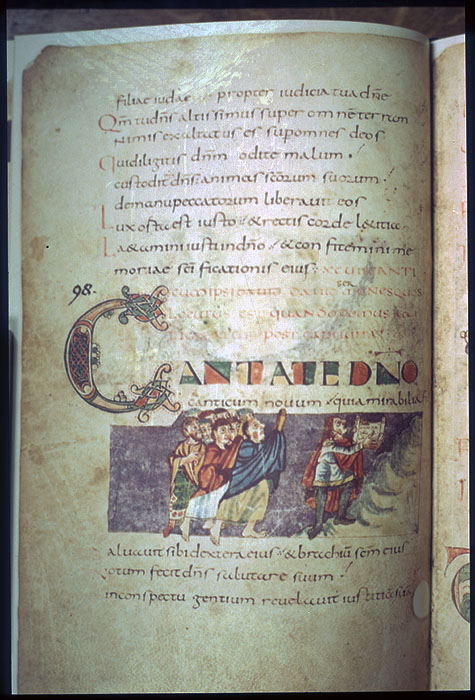 filiae iudae propter iudicia tua dñe
Qm̄ tu dñs altissimus super omnē terram
nimis exaltatus es sup omnes deos
Qui diligitis dnm̄ odite malum
custodit dñs animas scōrum suorum
de manu peccatorum liberavit eos
Lux orta est iusto & rectis corde laetitia
Laetamini iusti in dño & confitemini me
moriae scīficationis eius
98.
CANTATE DNO
canticum novum quia mirabilia
alvavit sibi dextera eius & brachiū scm̄ eius
otum fecit dñs salutare suum
in conspectu gentium revelavit iustitiā suā